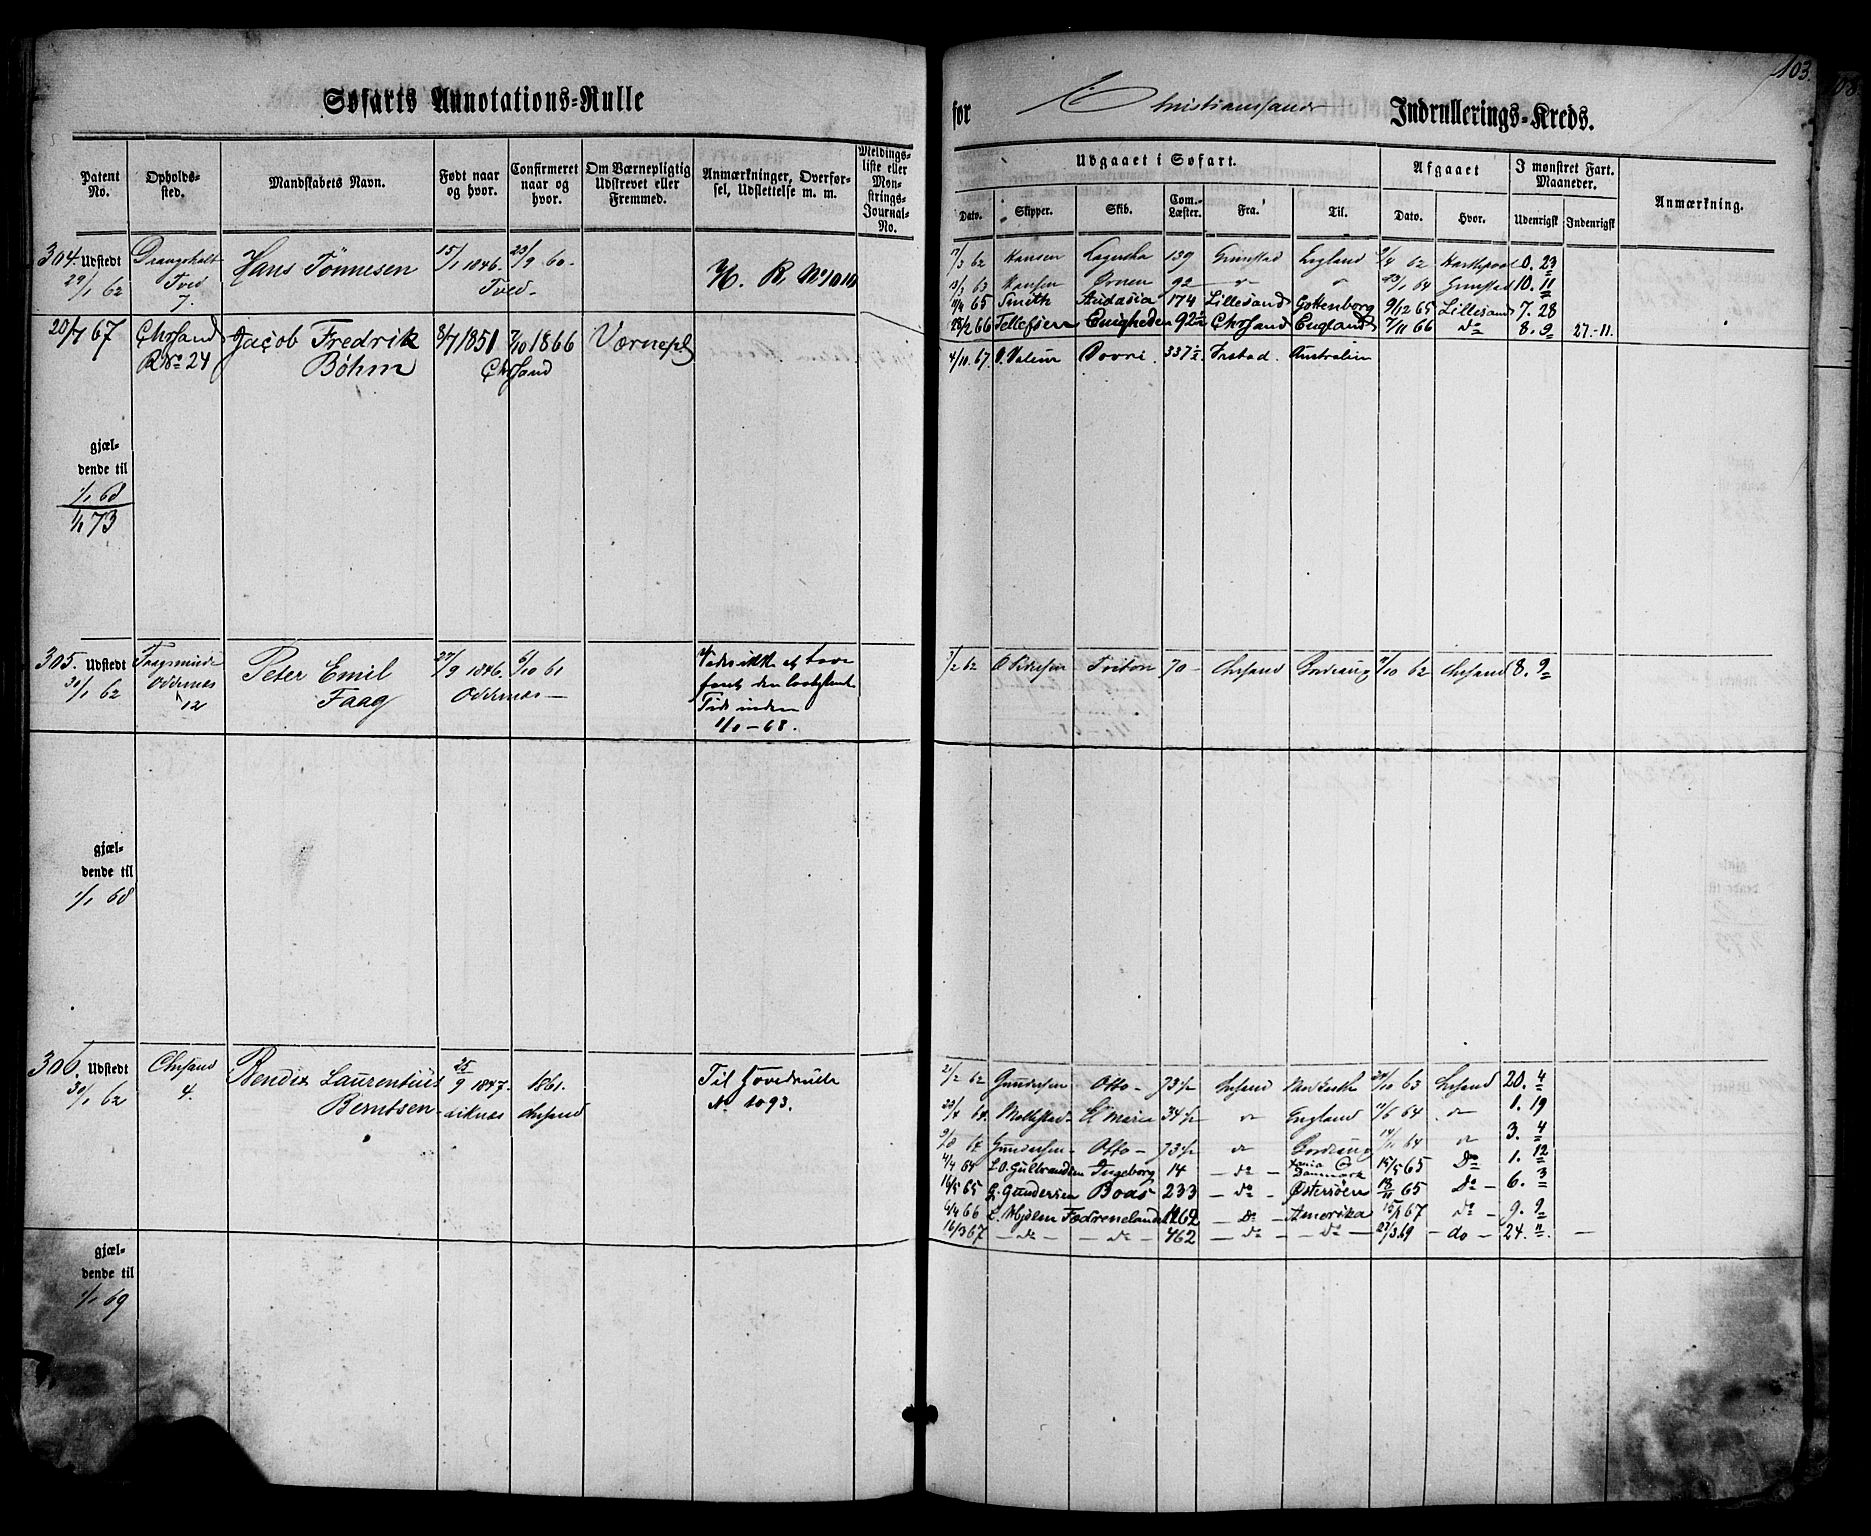 103.
Søfarts Annotations-Rulle
for Christianssands Indrullerings-Kreds.
Patent No. Opholds-sted. Mandskabets Navn. Født naar og hvor. Confirmeret naar og hvor. Om Værnepligtig Udskrevet eller Fremmed. Anmærkninger, Overførsel, Udslettelse m. m. Meldings-liste eller Mønstrings-Journal-No.
Udgaaet i Søfart. Afgaaet I mønstret Fart. Maaneder. Anmærkning.
Dato. Skipper. Skib. Com. Læster. Fra. Til. Dato. Hvor. Udenrigsk Indenrigsk
304 Udstedt 29/1 62
Drangsholt Tved 7.
Hans Tønnesen
15/1 1846. Tved
23/9 60.
H. R. No 1010
17/3 62 Hansen 139 Grimstad England 62 Hartlpool 0. 23
63 Hansen Ørnen 92 " " 23/1 64 Grimstad 10. 11
65 Smith 174 Lillesand Gottenborg 9/12 65 Lillesand 7. 28
28/2 66 Tellefsen Enigheden 92½ Chrsand England 7/11 66 do 8. 9 27.-11.
20/7 67
Chrsand R No 24
Jacob Fredrik Bøhm
8/7 1851 Chrsand
7/10 1866
Værnepl
4/10. 67. Dovre. 337½ Australien
gjæl-
dende til
1/1 68
1/1 73
305. Udstedt 31/1 62
Faagsminde Oddernes 12
Peter Emil Faag
27/9 1846. Oddernes
6/10 61
ikke at have
faret den lovbestemte
Tid inden
1/1 - 68.
7/2 62 Triton 70 Chrsand Bordeaux 7/10 62 Chrsand 8. 9
gjæl-
dende til
1/1 68
306. Udstedt 30/1 62
Chrsand 4.
Bendix Laurentius Berntsen
25/9 1847.
1861. Chrsand
Til Hovedrulle
No 1093.
21/2 62 Gundersen Otto 73½ Chrsand 24/10 63 Chrsand 20. 4
64 Maria 34½ " England 11/6 64 " 1. 19
Gundersen Otto 73½ " Bordeaux 64 " 3. 4
4/4 65 L.O. Gulbrandsen Ingeborg 14 do Danmark 15/5 65 Do 1. 12
16/5 65 G. Gundersen Boas 233 do Østersøen 18/11 65 Do 6. 3
6/4 66 L. Mjølm Fædrenelandet 462 Do Amerika 15/1 67 do 9. 9
16/3 67 do do 462 do do 27/3 69 do 24. "
gjæl-
dende til
1/1 69